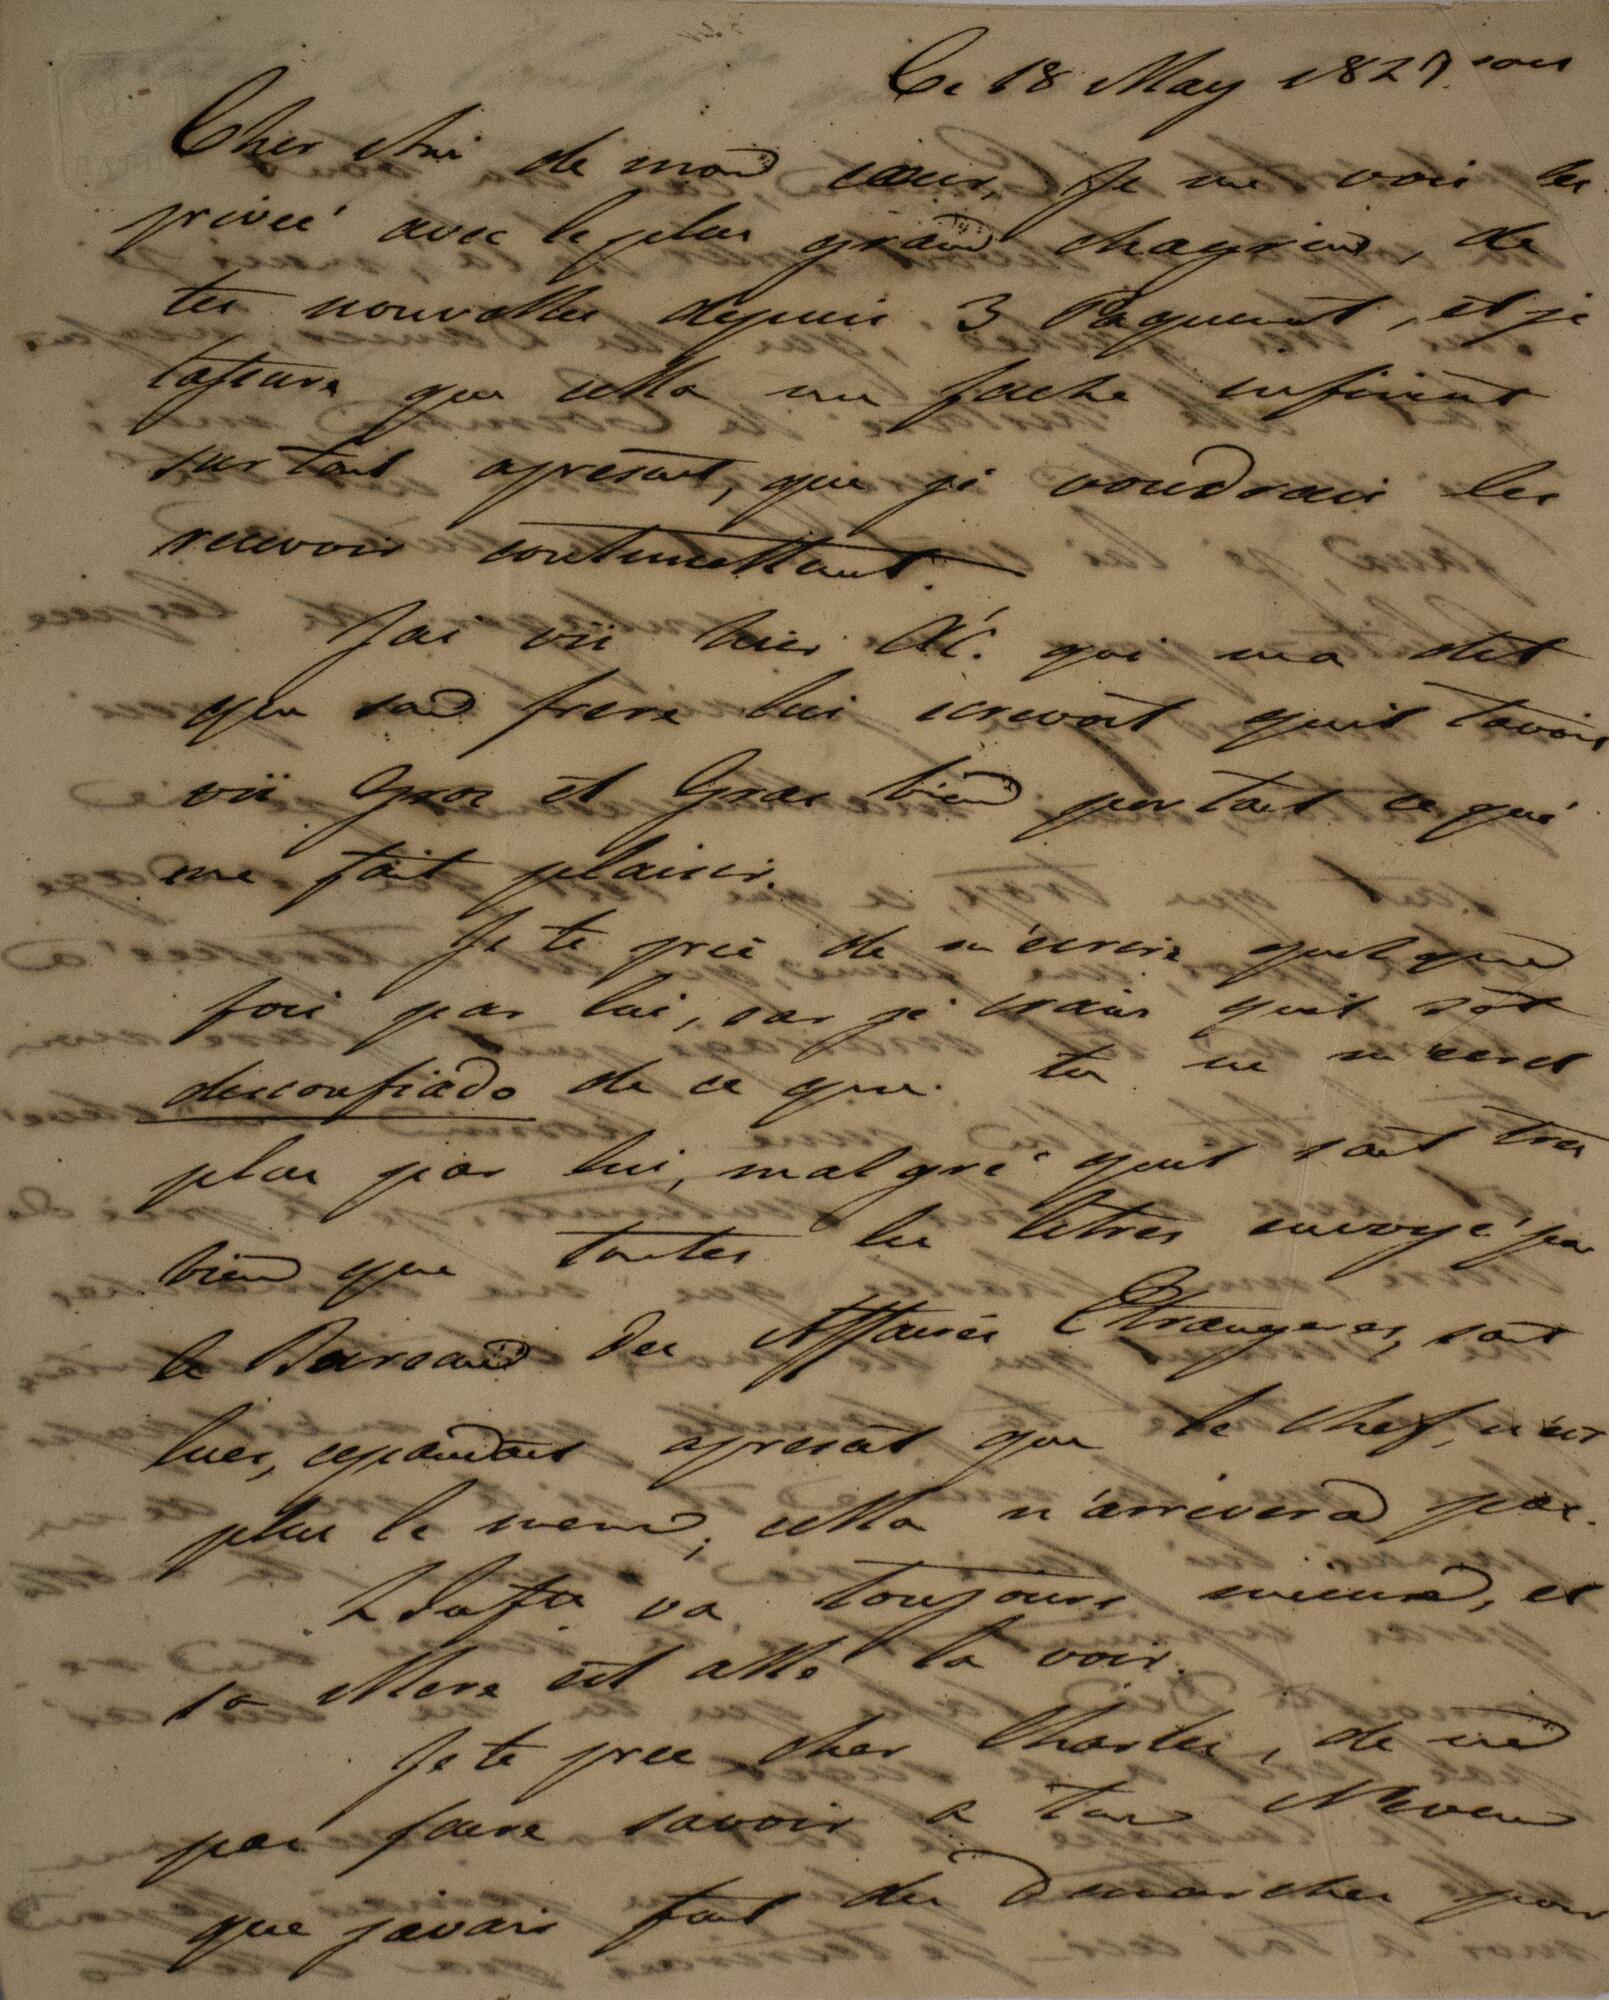 Ce 18 May 1827. soir
Cher Ami de mon cœur, Je me vois
privé avec le plus grand chagrin, de
tes nouvelles depuis 3 Paquent, et je
t'assure que cella me fache infiniant
surtout apresant, que je voudrais les
recevoir continuellant.
J'ai vü hier qui ma dit
que son frere lui ecrevoit qu'il tavois
vü Gros et Gras bien portant ce qui
me fait plaisir.
Je te prie de m'ecrire quelque
fois par lui, car je crains qu'il soit
desconfiado de ce que tu ne m'ecris
plus par lui, malgré qu'il sait tres
bien que toutes les letres envoyé par
le Bureau des Affaires Etrangeres, sont
lues, cependant apresant que le chef, n'est
plus le meme, cella n'arrivera pas.
va toujours mieux, et
sa Mere est allé la voir.
Je te prie cher Charles, de ne
pas faire savoir a ton Neveu
que j'avais fait des Demarches pour